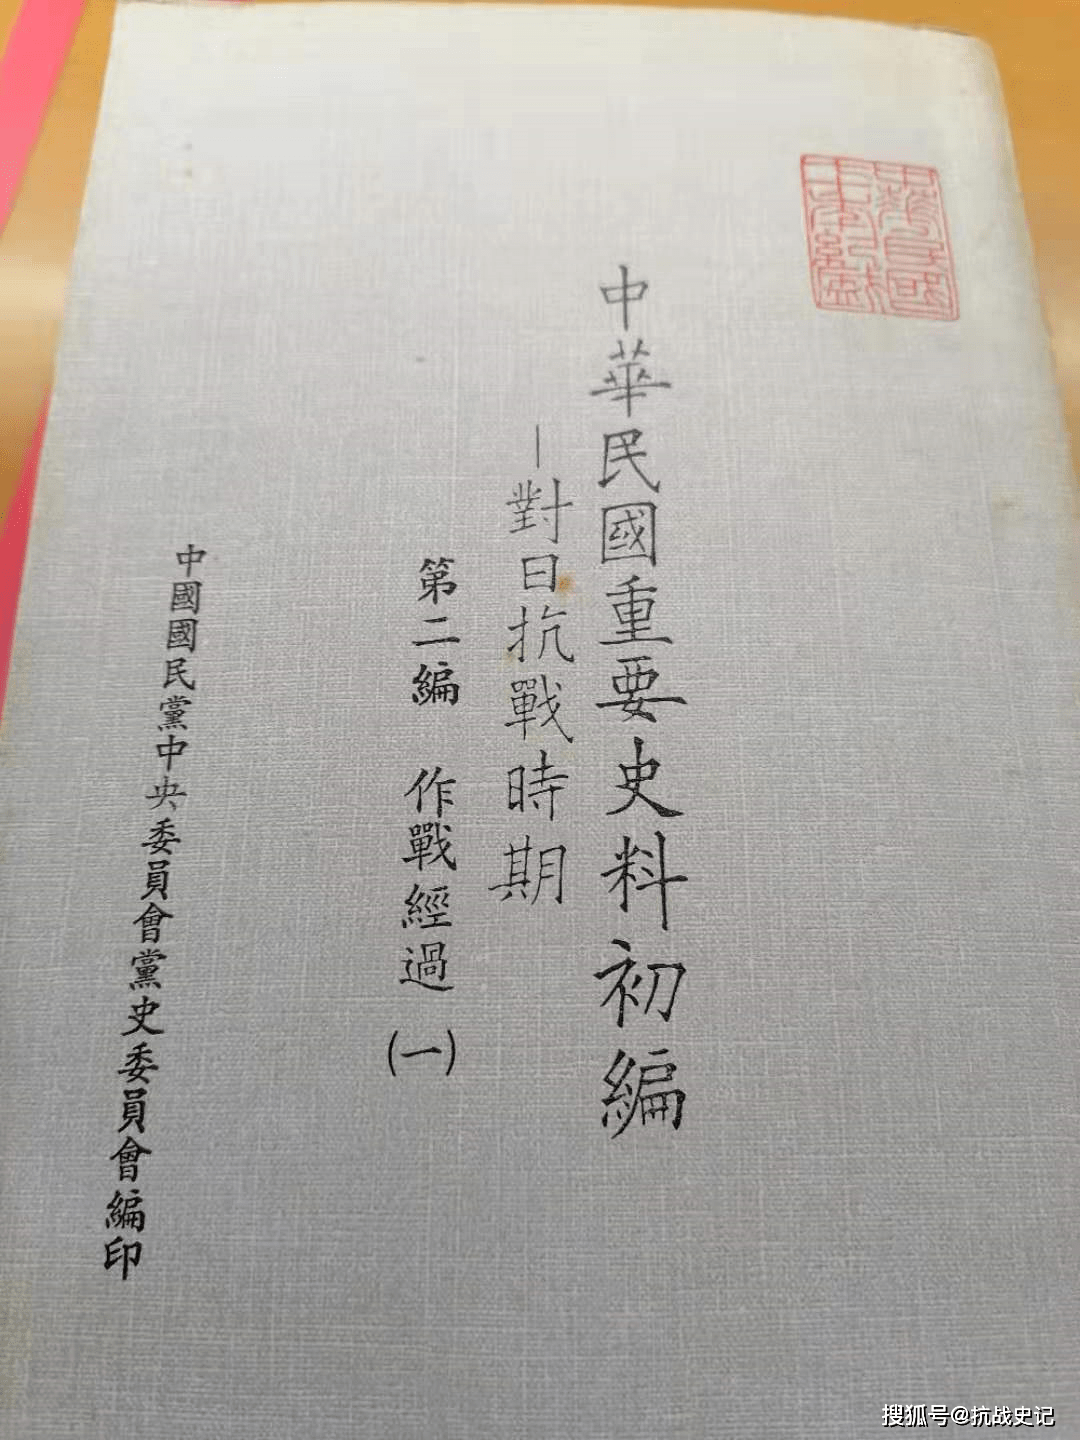 中華民國重要史料初編
—對日抗戰時期
第二編 作戰經過 (一)
中國國民黨中央委員會黨史委員會編印
搜狐号@抗战史记